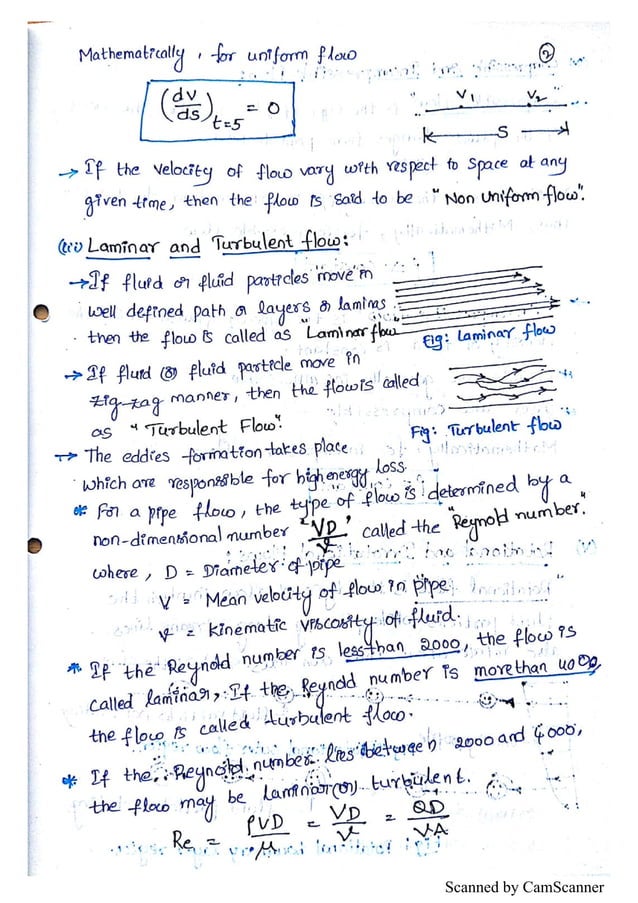 Mathematically, for uniform flow
2
(dv/ds)t=5 = 0
V1 V2
S
→ If the velocity of flow vary with respect to space at any
given time, then the flow is said to be "Non uniform flow".
(iii) Laminar and Turbulent flow:
→ If fluid or fluid particles move in
well defined path or layers or laminas
then the flow is called as "Laminar flow"
Fig: Laminar flow
→ If fluid or fluid particle move in
zig-zag manner, then the flow is called
as "Turbulent Flow".
Fig: Turbulent flow
→ The eddies formation takes place
which are responsible for high energy loss.
* For a pipe flow, the type of flow is determined by a
non-dimensional number "VD/ν" called the "Reynold number."
where, D = Diameter of pipe
V = Mean velocity of flow in pipe
ν = Kinematic viscosity of fluid.
* If the Reynold number is less than 2000, the flow is
called laminar, If the Reynold number is more than 4000
the flow is called turbulent flow.
* If the Reynold number lies between 2000 and 4000,
the flow may be laminar (or) turbulent.
Re = ρVD/μ = VD/ν = QD/νA
Scanned by CamScanner